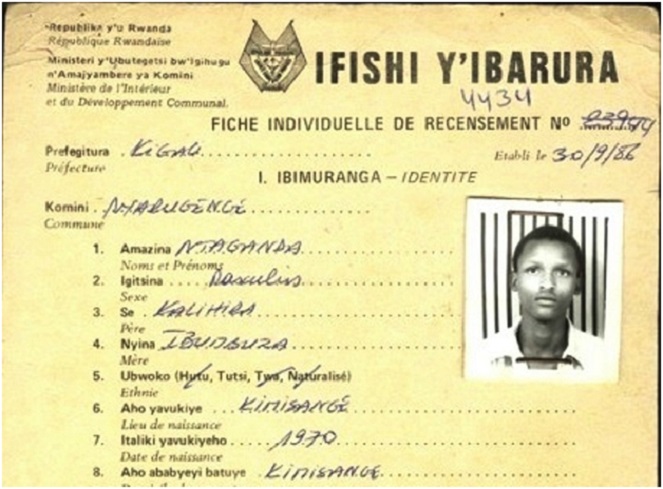 Republika y'u Rwanda
République Rwandaise
Ministeri y'Ubutegetsi bw'Igihugu
n'Amajyambere ya Komini
Ministère de l'Intérieur
et du Développement Communal.
IFISHI Y'IBARURA
4434
FICHE INDIVIDUELLE DE RECENSEMENT Nº
Prefegitura . KIGALI
Préfecture
Etabli le 30/9/86
I. IBIMURANGA – IDENTITE
Komini . NYARUGENGE
Commune
1. Amazina NTAGANDA
Noms et Prénoms
2. Igitsina . . . . Masculin
Sexe
3. Se . KALIHIRA
Père
4. Nyina
Mère
5. Ubwoko (Hutu, Tutsi, Twa, Naturalisé)
Ethnie
6. Aho yavukiye . . . KIMISANGE
Lieu de naissance
7. Italiki yavukiyeho . . . . . 1970
Date de naissance
8. Aho ababyeyi batuye . KIMISANGE